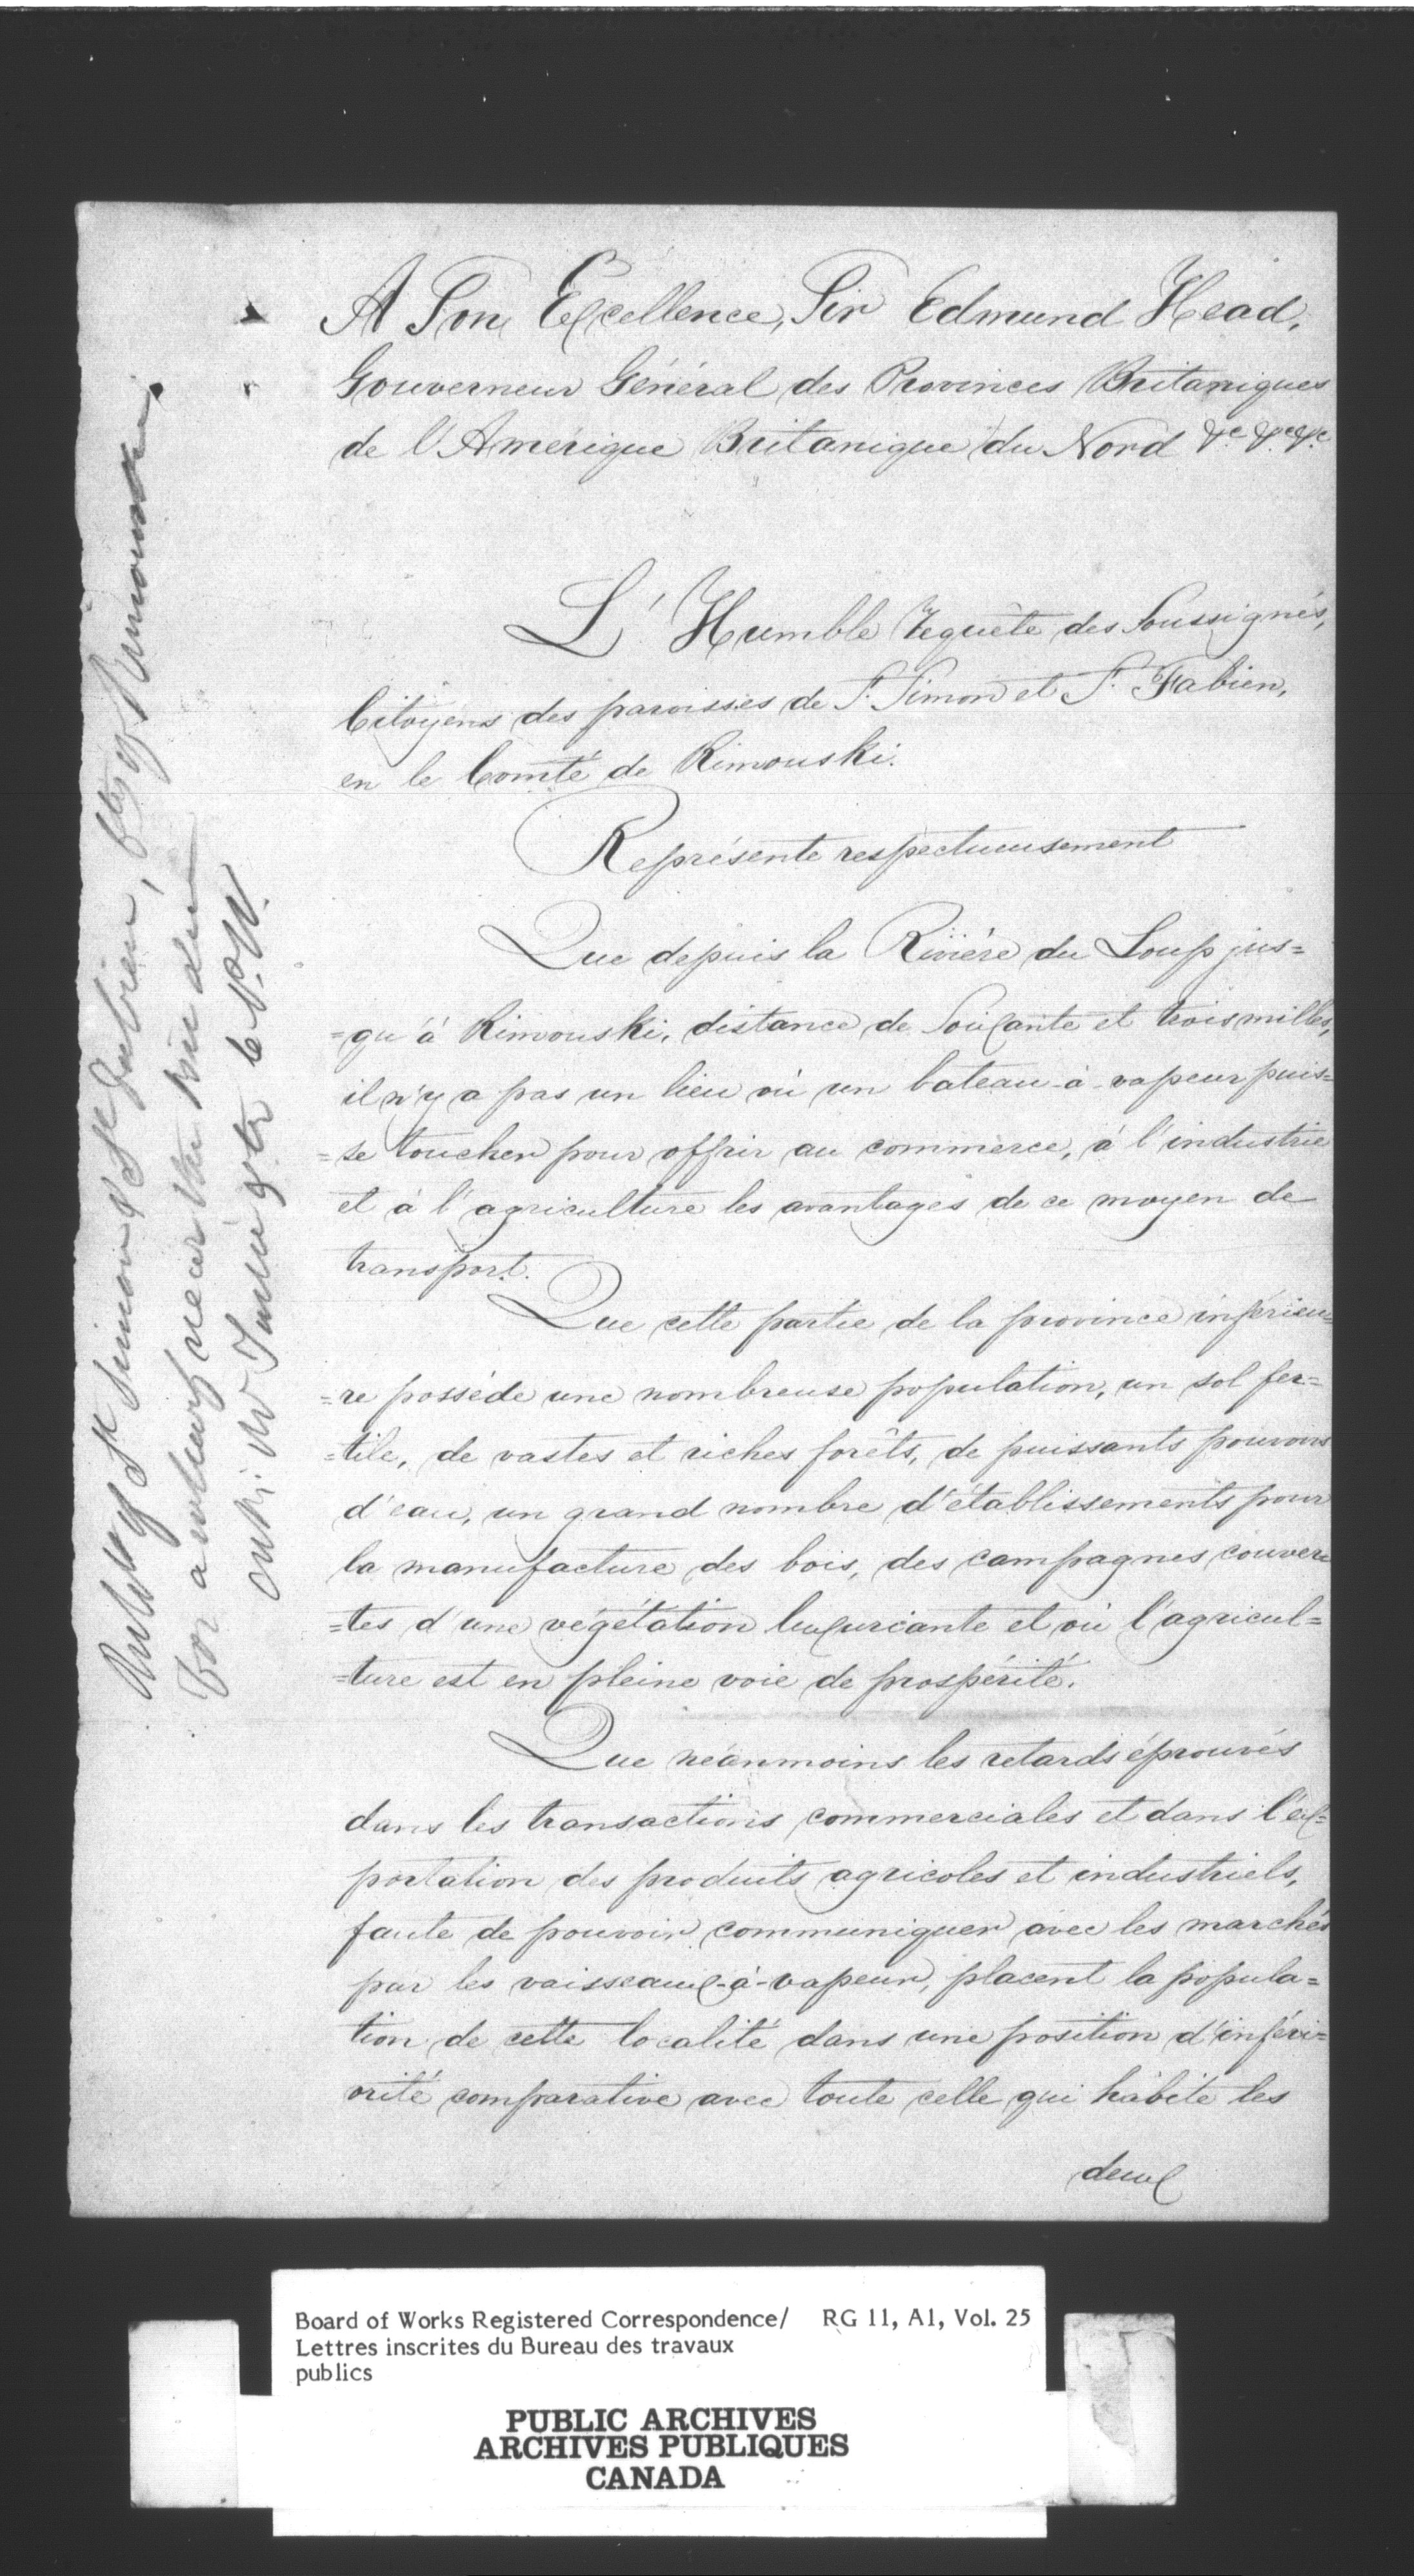 A Son Excellence, Sir Edmund Head,
Gouverneur Général des Provinces Britaniques
de l'Amérique Britanique du Nord &c &c &c
L'Humble requête des Soussignés,
Citoyens des paroisses de St. Simon et St. Fabien,
en le Comté de Rimouski.
Représente respectueusement
Que depuis la Rivière du Loup jus=
=qu'à Rimouski, distance de Soixante et trois milles,
il n'y a pas un lieu où un bateau-à-vapeur puis=
=se toucher pour offrir au commerce, à l'industrie
et à l'agriculture les avantages de ce moyen de
transport.
Que cette partie de la province inférieu=
=re possède une nombreuse population, un sol fer=
=tile, de vastes et riches forêts, de puissants pouvoirs
d'eau, un grand nombre d'établissements pour
la manufacture des bois, des campagnes couver=
=tes d'une végétation luxuriante et où l'agricul=
=ture est en pleine voie de prospérité.
Que néanmoins les retards éprouvés
dans les transactions commerciales et dans l'ex=
portation des produits agricoles et industriels,
faute de pouvoir communiquer avec les marchés
par les vaisseaux-à-vapeur, placent la popula=
tion de cette localité dans une position d'inféri=
orité comparative avec toute celle qui habite les
deux
of St Simon & St Fabien, Cty of Rimouski
For a wharf near
Board of Works Registered Correspondence/ RG 11, A1, Vol. 25
Lettres inscrites du Bureau des travaux
publics
PUBLIC ARCHIVES
ARCHIVES PUBLIQUES
CANADA